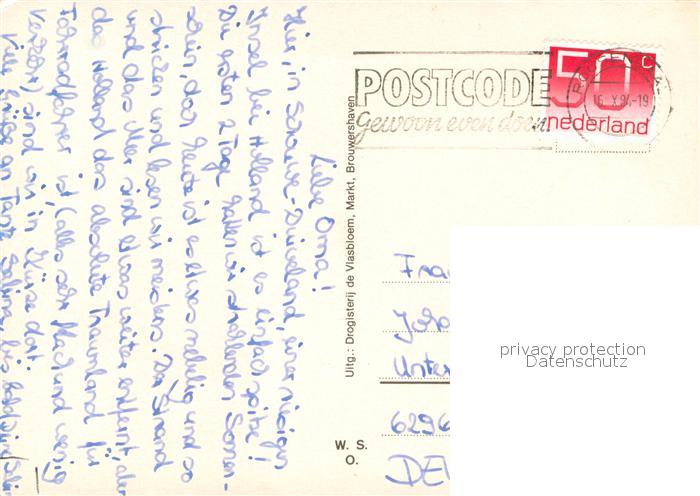 Liebe Oma!
Hier, in Schouwe-Duiveland, einer riesigen
Insel bei Holland ist es einfach spitze!
Die ersten 2 Tage hatten wir strahlenden Sonnen-
schein doch heute ist es etwas neblig und so
stricken und lesen wir meistens. Der Strand
und das Meer sind etwas weiter entfernt, aber
da Holland das absolute Traumland für
Fahrradfahrer ist (alles sehr flach und wenig
Verkehr) sind wir in Kürze dort.
Viele Grüße an Tante Sabine, bis bald
Uitg.: Drogisterij de Vlasbloem, Markt, Brouwershaven
POSTCODE
gewoon even doen
50 C
nederland
16. X 84-19
Frau
Unter
6296
W. S.
O.
privacy protection
Datenschutz